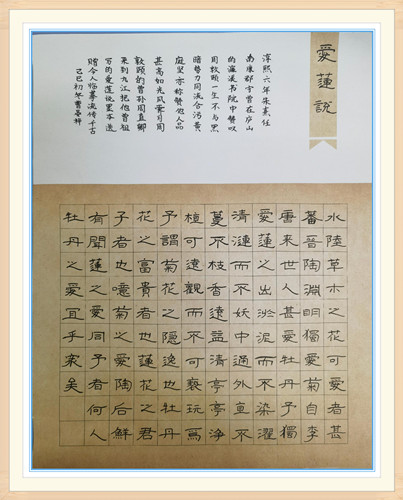 愛蓮說
淳熙六年朱熹任
南康郡守曾在庐山
的濂溪书院中赞叹
周敦颐一生不与黑
暗势力同流合污黄
庭坚亦称赞他人品
甚高如光风霁月周
敦颐的曾孙周直卿
来到九江把他曾祖
写的爱莲说墨本送
赠令人临摹流传千古
己巳初冬曹
水陸草木之花可愛者甚
蕃晉陶淵明獨愛菊自李
唐来世人甚愛牡丹予獨
愛蓮之出淤泥而不染濯
清漣而不妖中通外直不
蔓不枝香遠益清亭亭淨
植可遠觀而不可褻玩焉
予謂菊花之隐逸也牡丹
花之富貴者也蓮花之君
子者也噫菊之愛陶后鮮
有聞蓮之愛同予者何人
牡丹之愛宜乎衆矣